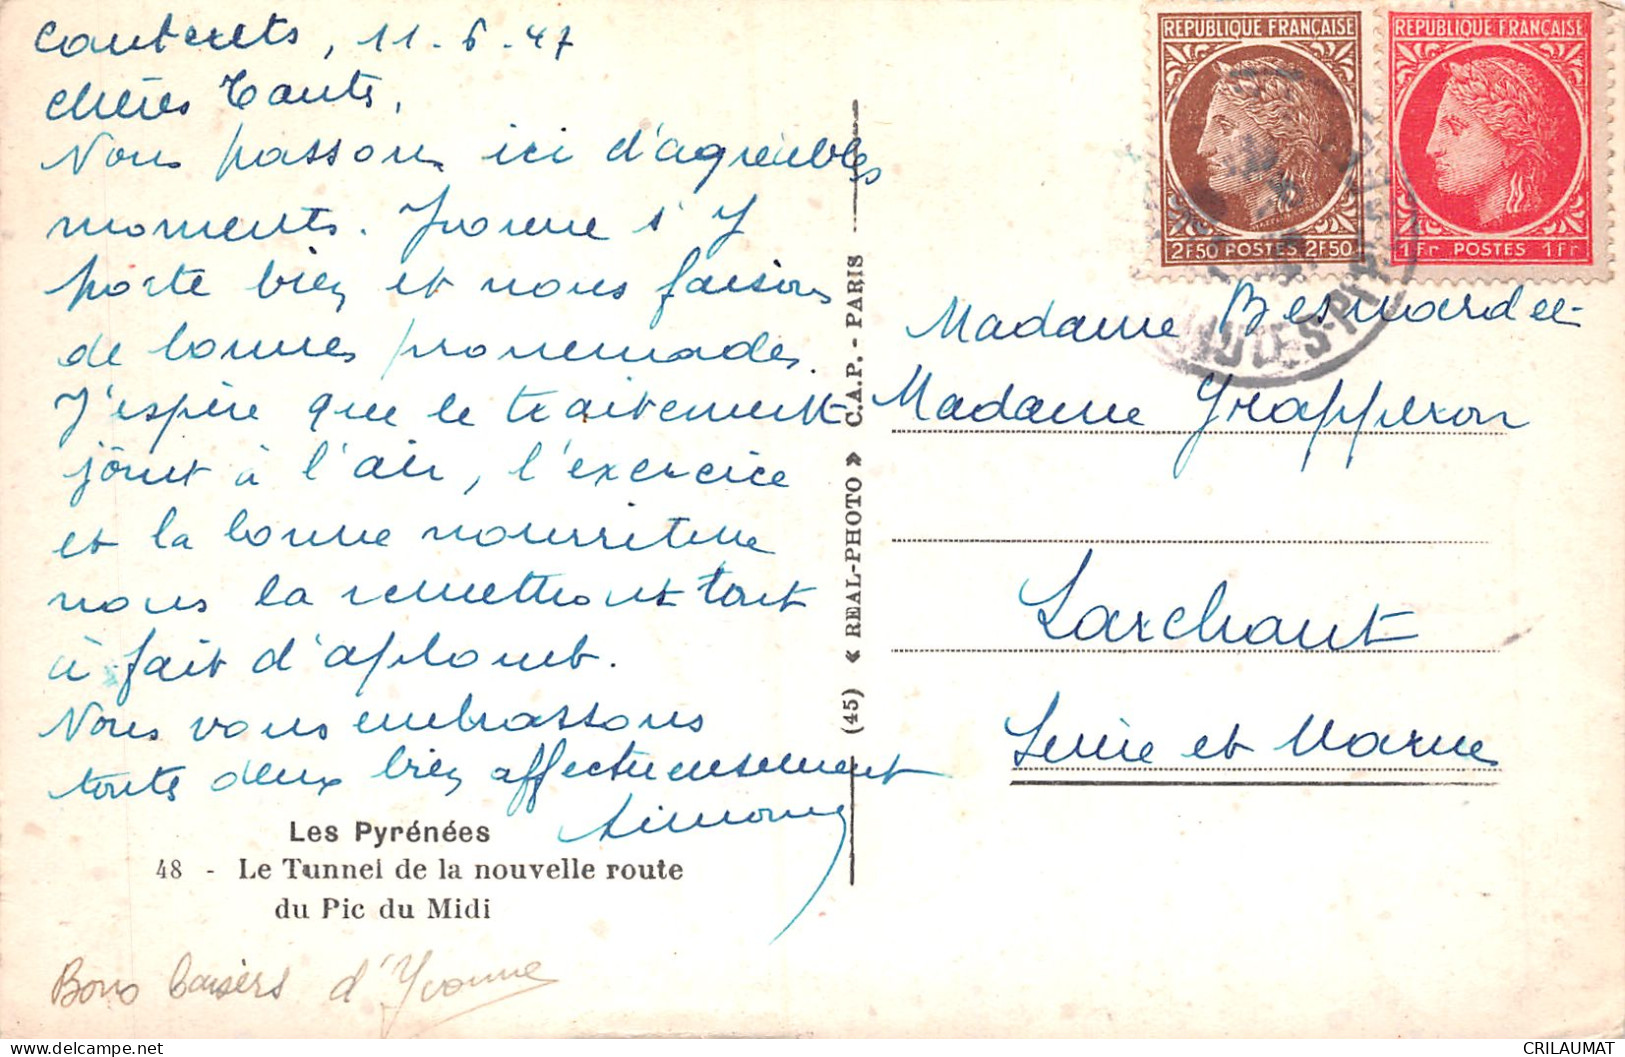 Cauterets, 11-6-47
chères Tantes,
Nous passons ici d'agréables
moments. Yvonne s'y
porte bien et nous faisons
de bonnes promenades.
J'espère que le traitement
joint à l'air, l'exercice
et la bonne nourriture
nous la remettront tout
à fait d'aplomb.
Nous vous embrassons
toutes deux bien affectueusement
Simone
Les Pyrénées
48 - Le Tunnel de la nouvelle route
du Pic du Midi
Bons baisers d'Yvonne
(45) « REAL-PHOTO » C.A.P. - PARIS
REPUBLIQUE FRANÇAISE
2F50 POSTES 2F50
REPUBLIQUE FRANÇAISE
1Fr POSTES 1Fr
HAUTES-PYRENEES
Madame
Madame Grapperon
Larchant
Seine et Marne
CRILAUMAT